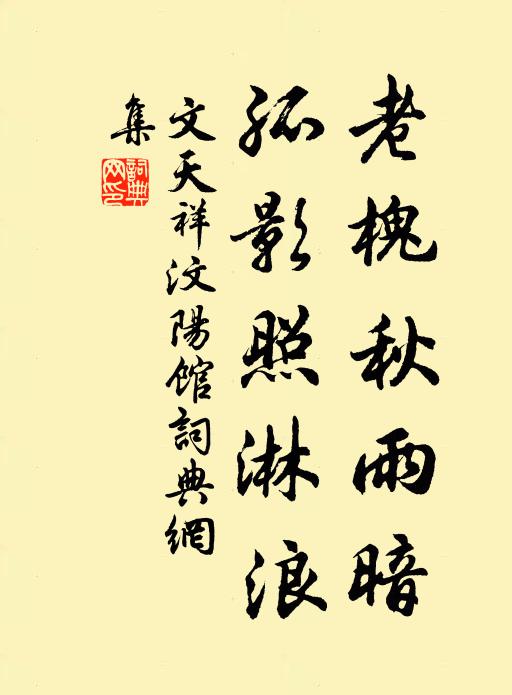 老槐秋雨暗
孤影照淋浪
文天祥汶陽館詞典網
集
詞典網印